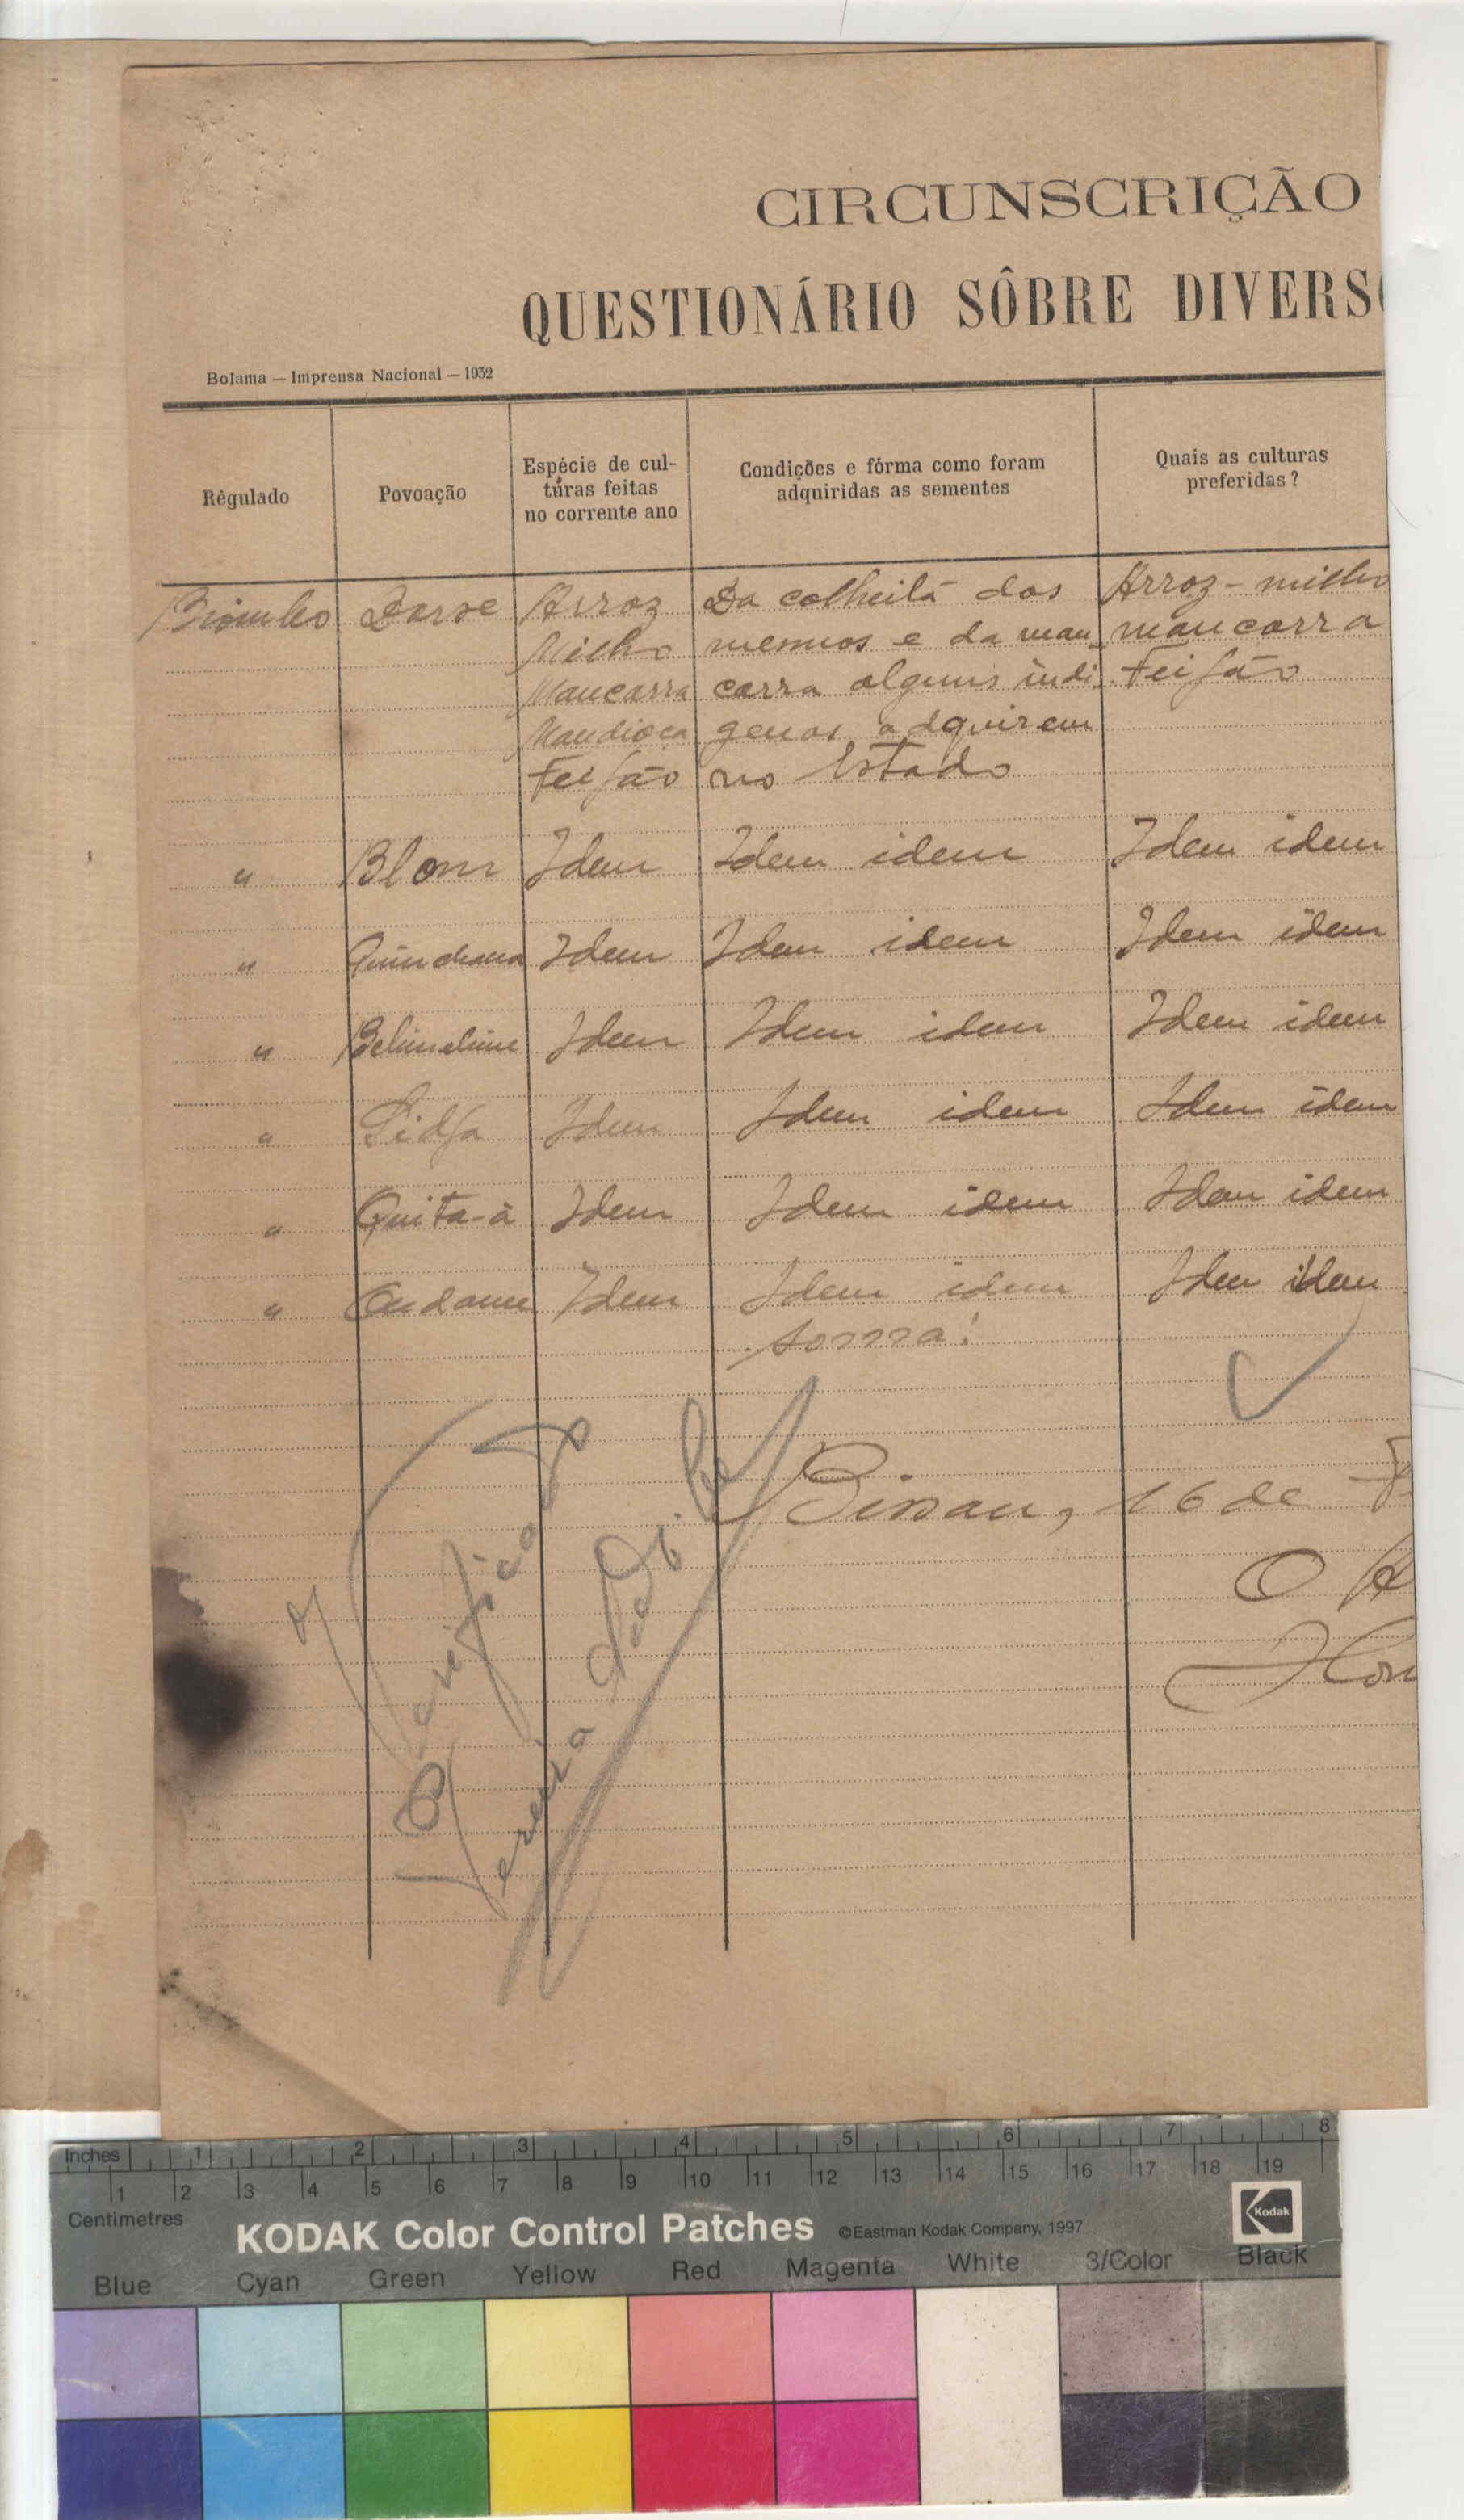 CIRCUNSCRIÇÃO
QUESTIONÁRIO SÔBRE DIVERS
Bolama — Imprensa Nacional — 1932
Régulado
Povoação
Espécie de cul-
turas feitas
no corrente ano
Condições e fórma como foram
adquiridas as sementes
Quais as culturas
preferidas?
Biombo Dorse Arroz Da colheita dos Arroz - milho
Milho mesmos e da man- mancarra
Mancarra carra alguns indi- Feijão
Mandioca genas adquirem
Feijão no Estado
" Blom Idem Idem idem Idem idem
" Idem Idem idem Idem idem
" Idem Idem idem Idem idem
" Idem Idem idem Idem idem
" Quita-á Idem Idem idem Idem idem
" Idem Idem idem Idem idem
Bissau, 16 de
O
Inches 1 2 3 4 5 6 7 8
1 2 3 4 5 6 7 8 9 10 11 12 13 14 15 16 17 18 19
Centimetres
KODAK Color Control Patches ©Eastman Kodak Company, 1997
Kodak
Blue Cyan Green Yellow Red Magenta White 3/Color Black